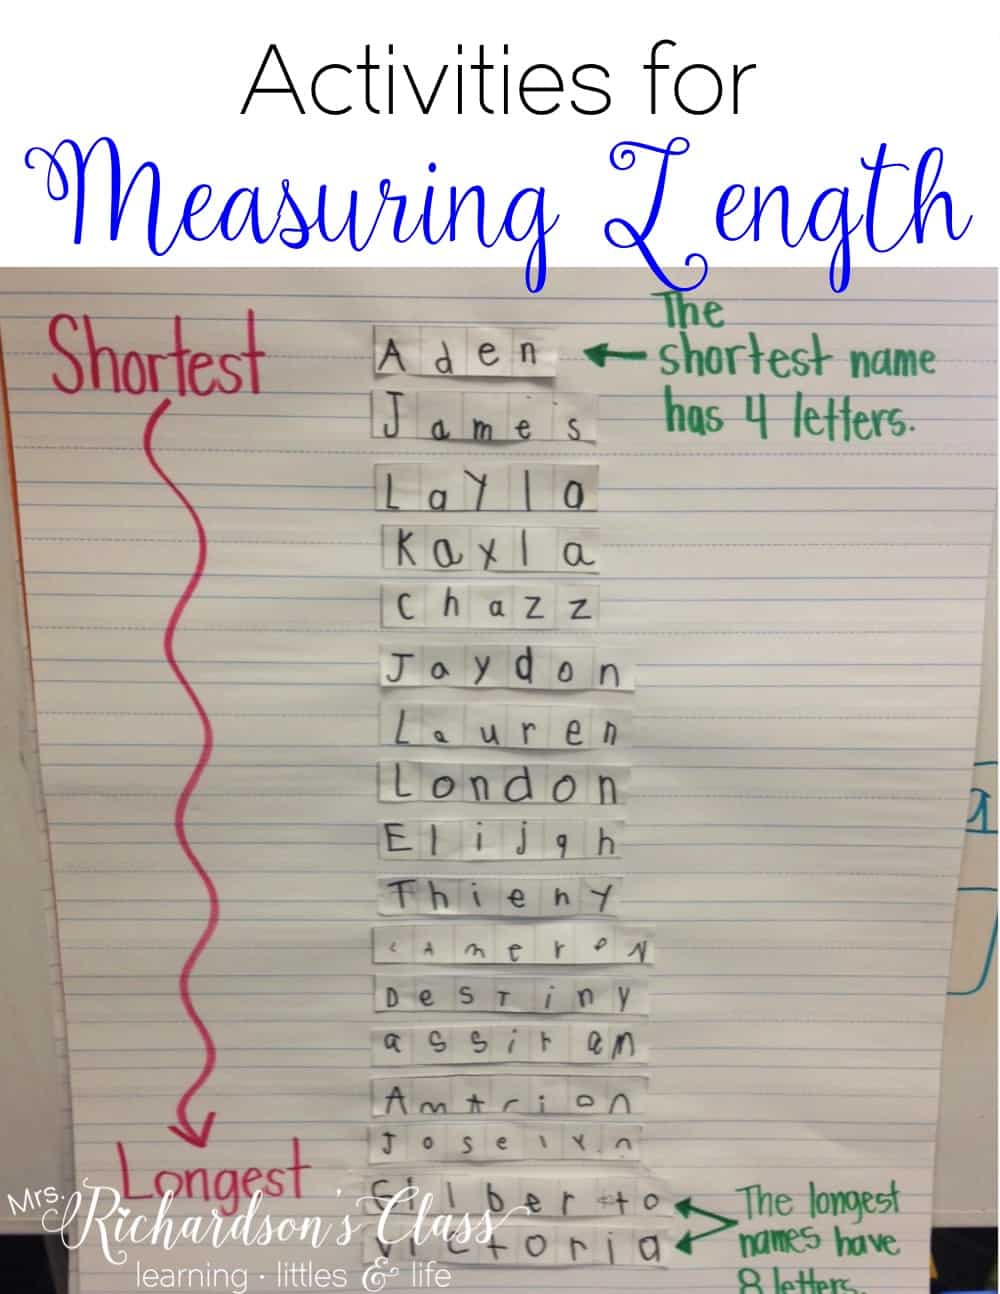 Activities for
Measuring Length
Shortest
Aden
The
shortest name
has 4 letters.
James
Layla
Kayla
chazz
Jaydon
Lauren
London
Elijah
Thieny
CAmeroN
DeSTiny
assiran
Amtrion
Joselyn
Longest
Gilberto
Victoria
The longest
names have
8 letters.
Mrs.
Richardson's Class
learning · littles & life